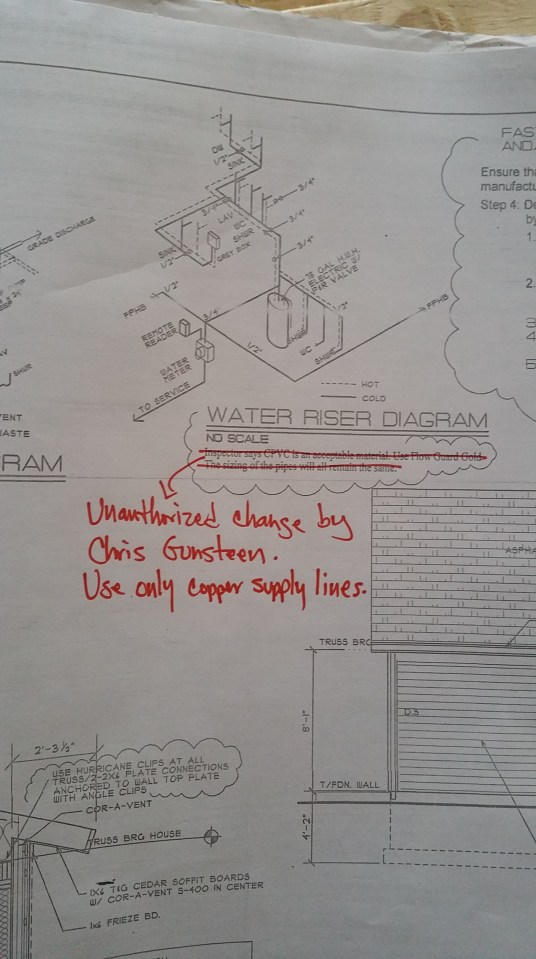 FAS
AND
Ensure tha
manufactu
Step 4: De
by
1.
2.
3
4
5
DW
1/2"
SINK
3/4"
3/4"
LAV
WC
SHWR
3/4"
3/4"
SINK
1/2"
GREY BOX
GRADE DISCHARGE
GAL H.W.H.
ELECTRIC W/
VALVE
1/2"
FPHB
3/4"
1/2"
FPHB
REMOTE
READER
WATER
METER
1/2"
SHWR
WC
SHWR
TO SERVICE
HOT
COLD
SHWR
VENT
WASTE
RAM
WATER RISER DIAGRAM
NO SCALE
Inspector says CPVC is an acceptable material. Use Flow Guard Gold
The sizing of the pipes will all remain the same.
Unauthorized change by
Chris Gunsteen.
Use only copper supply lines.
ASPHA
TRUSS BRG
8'-1"
D.S
T/FDN. WALL
4'-2"
2'-3 1/2"
USE HURRICANE CLIPS AT ALL
TRUSS/2-2X6 PLATE CONNECTIONS
ANCHORED TO WALL TOP PLATE
WITH ANGLE CLIPS
COR-A-VENT
TRUSS BRG HOUSE
1X6 T&G CEDAR SOFFIT BOARDS
W/ COR-A-VENT S-400 IN CENTER
1x6 FRIEZE BD.